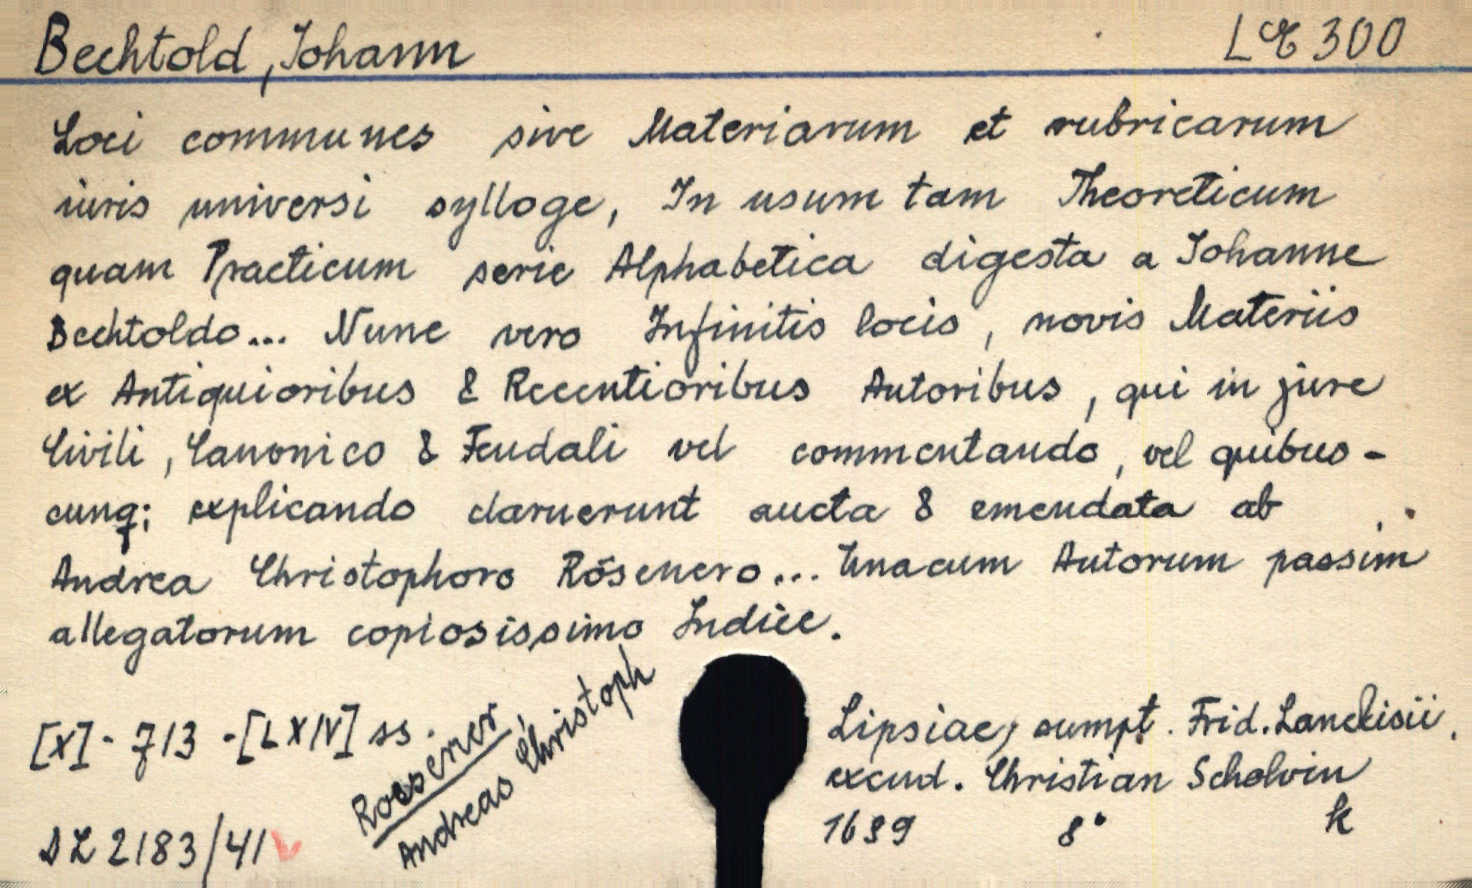 Bechtold, Johann
Loci communes sive Materiarum et rubricarum
iuris universi sylloge, In usum tam Theoreticum
quam Practicum serie Alphabetica digesta a Iohanne
Bechtoldo... Nunc vero Infinitis locis, novis Materiis
ex Antiquioribus & Recentioribus Autoribus, qui in jure
Civili, Canonico & Feudali vel commentando, vel quibus-
cunq; explicando claruerunt aucta & emendata ab
Andrea Christophoro Rösenero... Unacum Autorum passim
allegatorum copiosissimo Indice.
[X]-713-[LXIV] ss.
Roesener,
Andreas Christoph
Lipsiae, sumpt. Frid. Lanckisii,
excud. Christian Scholvin
1689 8° k
2183/41